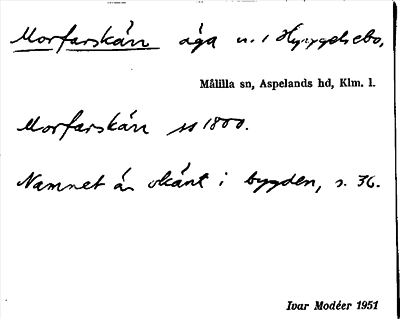 Morfarskärr äga u. i Hyngelsebo,
Målilla sn, Aspelands hd, Klm. l.
Morfarskärr ss 1800.
Namnet är okänt i bygden, s. 36.
Ivar Modéer 1951